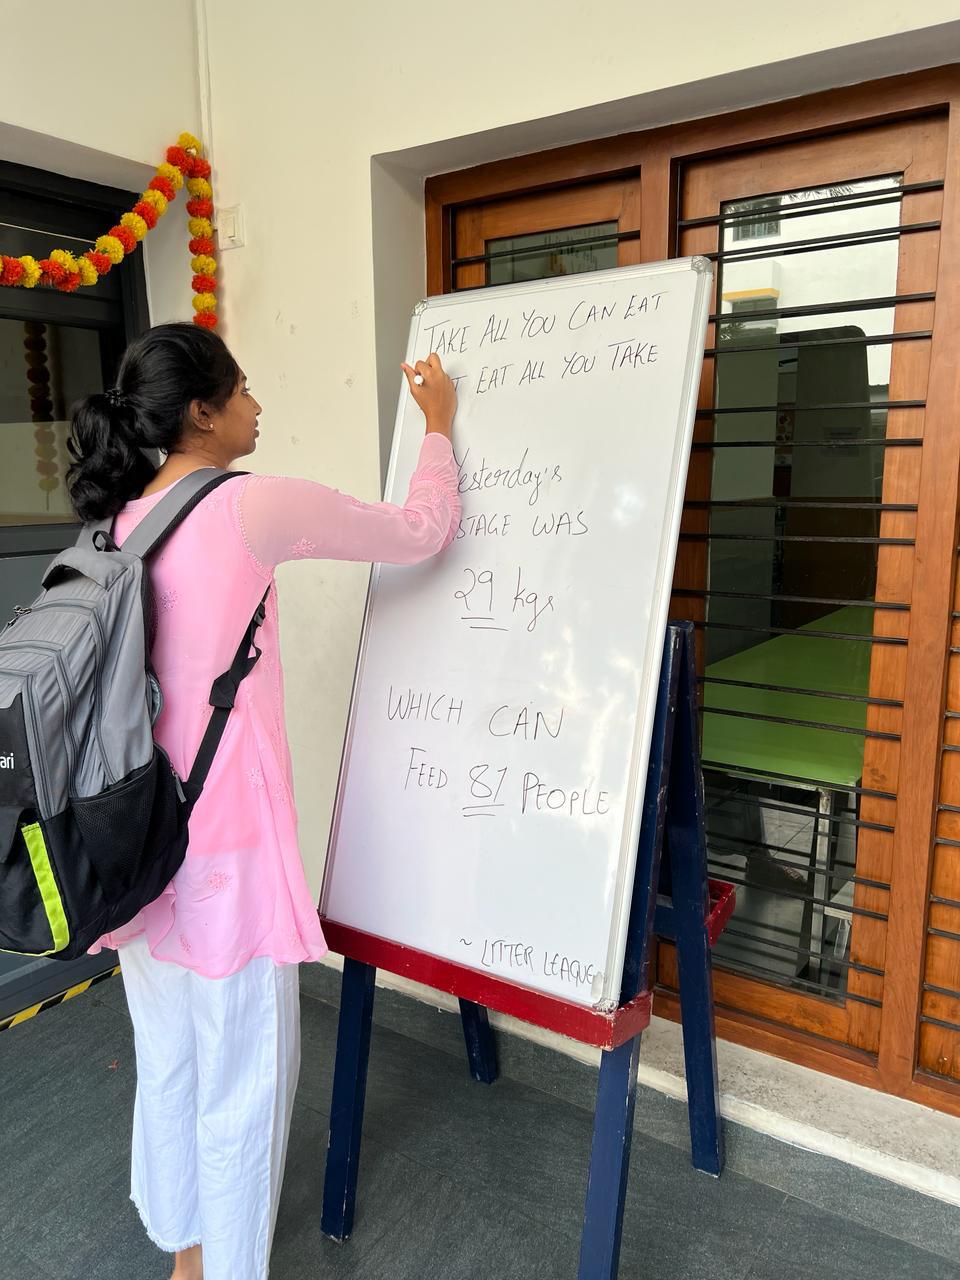 TAKE ALL YOU CAN EAT
EAT ALL YOU TAKE
Yesterday's
WAS
29 kgs
WHICH CAN
FEED 87 PEOPLE
~ LITTER LEAGUE